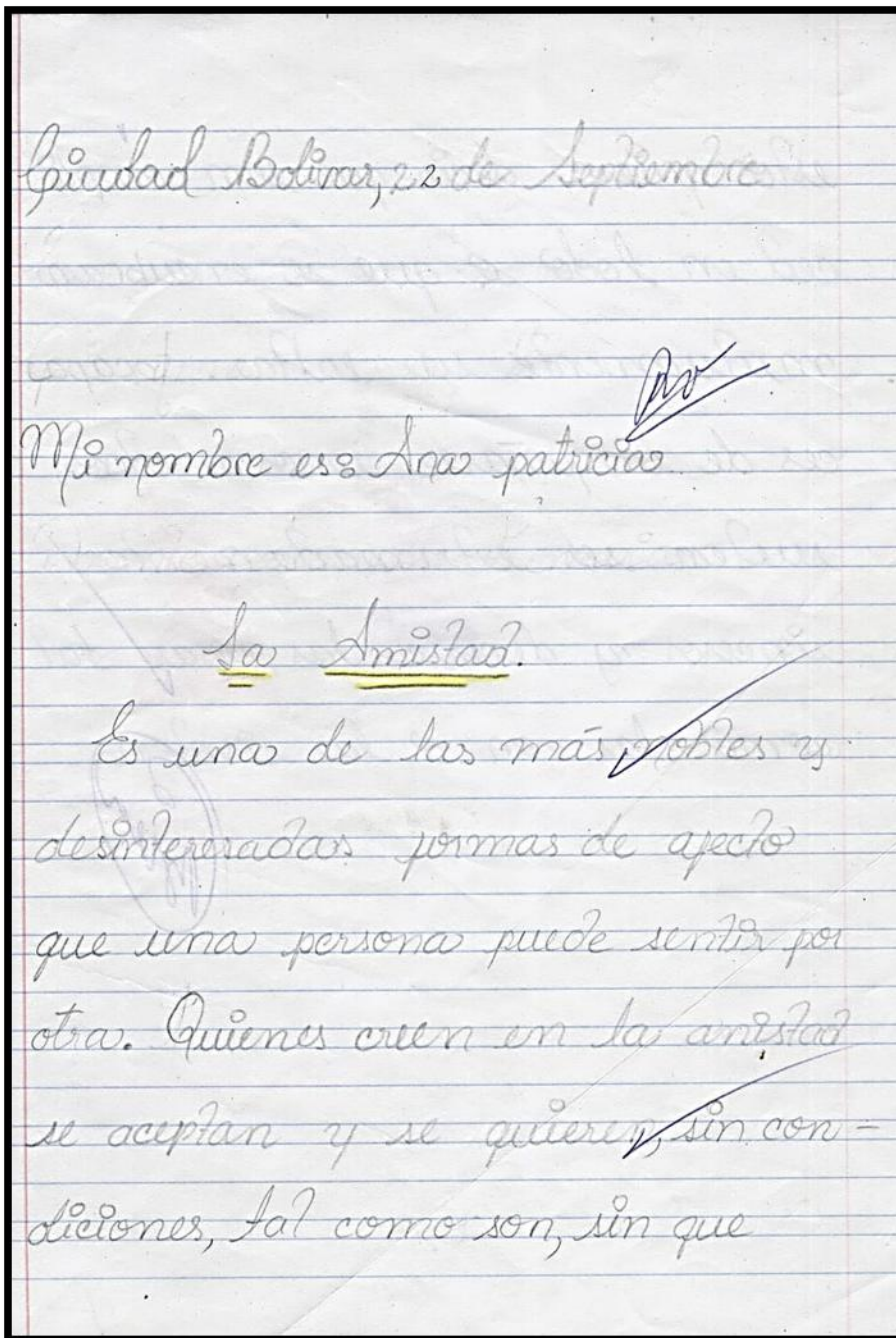 Ciudad Bolivar, 22 de Septiembre
Mi nombre es: Ana patricia
La Amistad.
Es una de las más nobles y
desinteresadas formas de afecto
que una persona puede sentir por
otra. Quienes creen en la amistad
se aceptan y se quieren, sin con-
diciones, tal como son, sin que